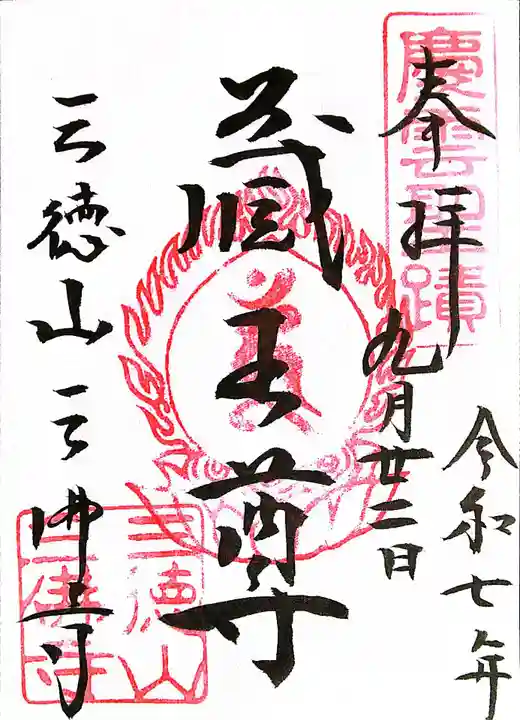 慶雲聖蹟
奉拝
令和七年
九月廿二日
蔵王尊
三徳山三佛寺
三徳山
三佛寺